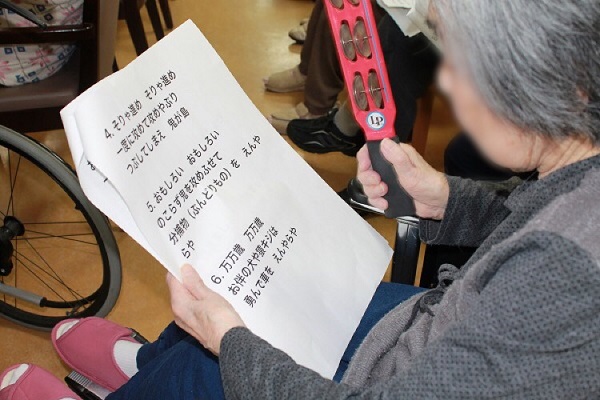 4. そりゃ進め そりゃ進め
一度に攻めて攻めやぶり
つぶしてしまえ 鬼が島
5. おもしろい おもしろい
のこらず鬼を攻めふせて
分捕物(ぶんどりもの)を えんや
らや
6. 万万歳 万万歳
お伴の犬や猿キジは
勇んで車を えんやらや
LP